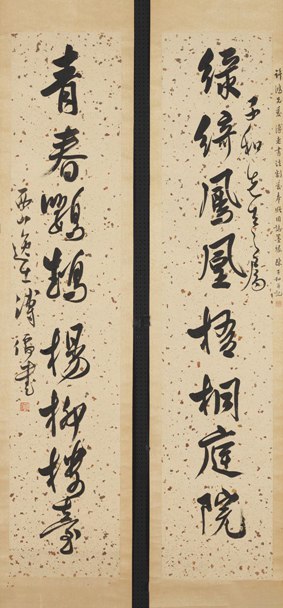 綠綺鳳凰梧桐庭院
子和先生屬
青春鸚鵡楊柳樓臺
西山逸士溥儒書